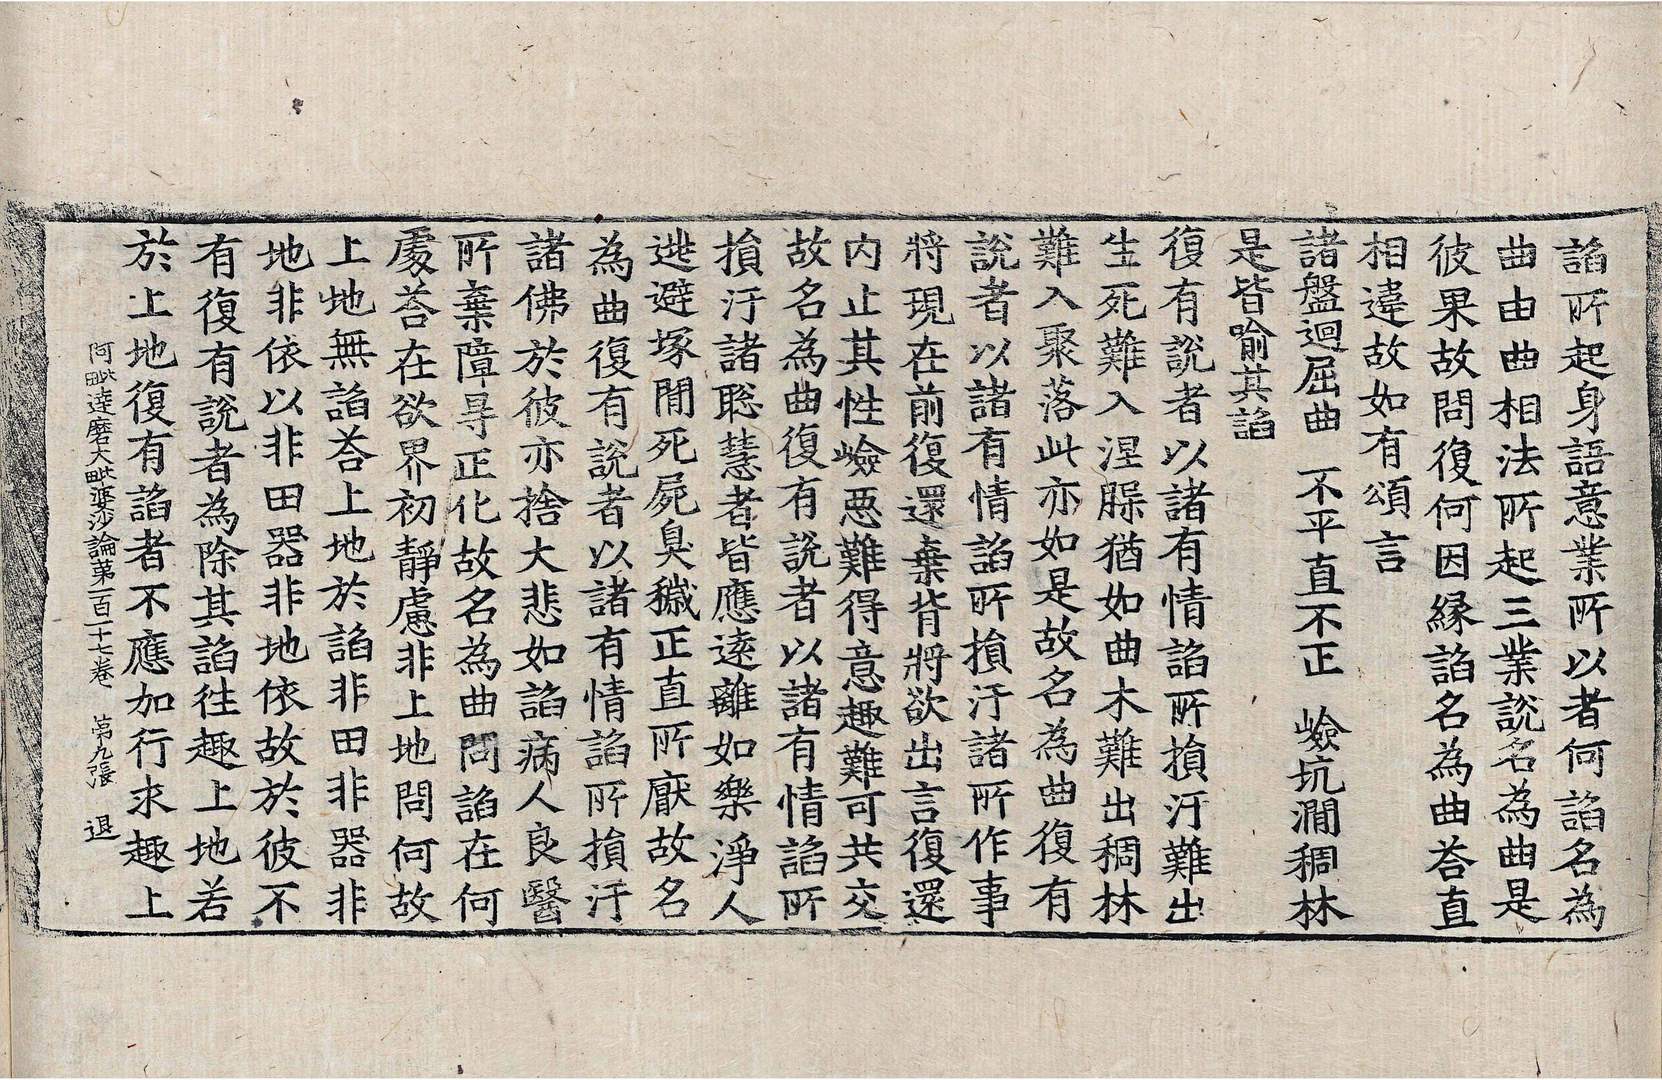 諂所起身語意業所以者何諂名為
曲由曲曲相法所起三業說名為曲是
彼果故問復何因縁諂名為曲荅直
相違故如有頌言
諸盤迴屈曲 不平直不正 嶮坑澗稠林
是皆喻其諂
復有說者以諸有情諂所損汙難出
生死難入涅槃猶如曲木難出稠林
難入聚落此亦如是故名為曲復有
說者以諸有情諂所損汙諸所作事
將現在前復還棄背將欲出言復還
內止其性嶮惡難得意趣難可共交
故名為曲復有說者以諸有情諂所
損汙諸聡慧者皆應遠離如樂淨人
逃避塚間死屍臭穢正直所厭故名
為曲復有說者以諸有情諂所損汙
諸佛於彼亦捨大悲如諂病人良醫
所棄障尋正化故名為曲問諂在何
處荅在欲界初靜慮非上地問何故
上地無諂荅上地於諂非田非器非
地非依以非田器非地依故於彼不
有復有說者為除其諂往趣上地若
於上地復有諂者不應加行求趣上
阿毗達磨大毗婆沙論第一百一十七卷 第九張 退